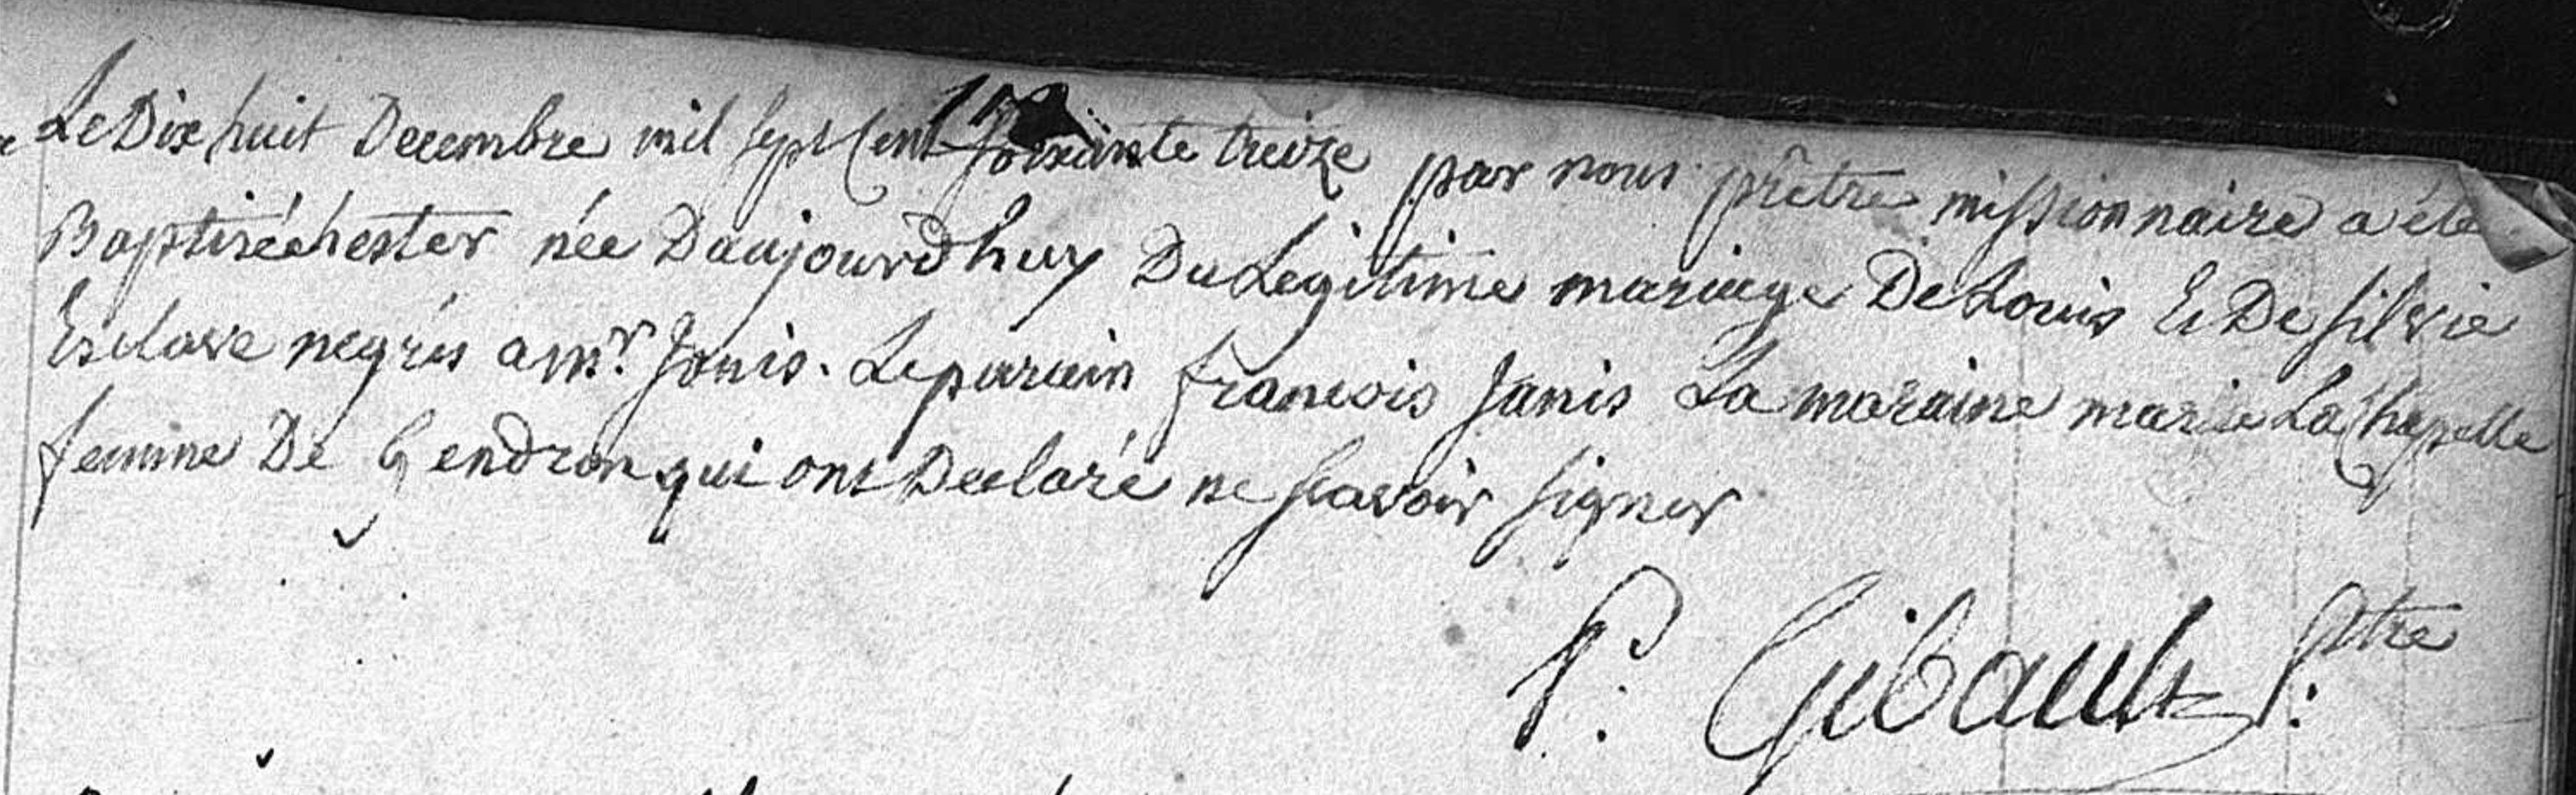 Le Dix huit Decembre mil sept Cent soixante treize par nous prêtre missionnaire a été
Baptisée hester née Daujourdhuy Du Legitime mariage De Louis Et De silvie
Esclave negres a mr. Janis. Le parain francois Janis La maraine marie La Chapelle
femme De Gendron qui ont Declaré ne scavoir signer
P. Gibault P.tre